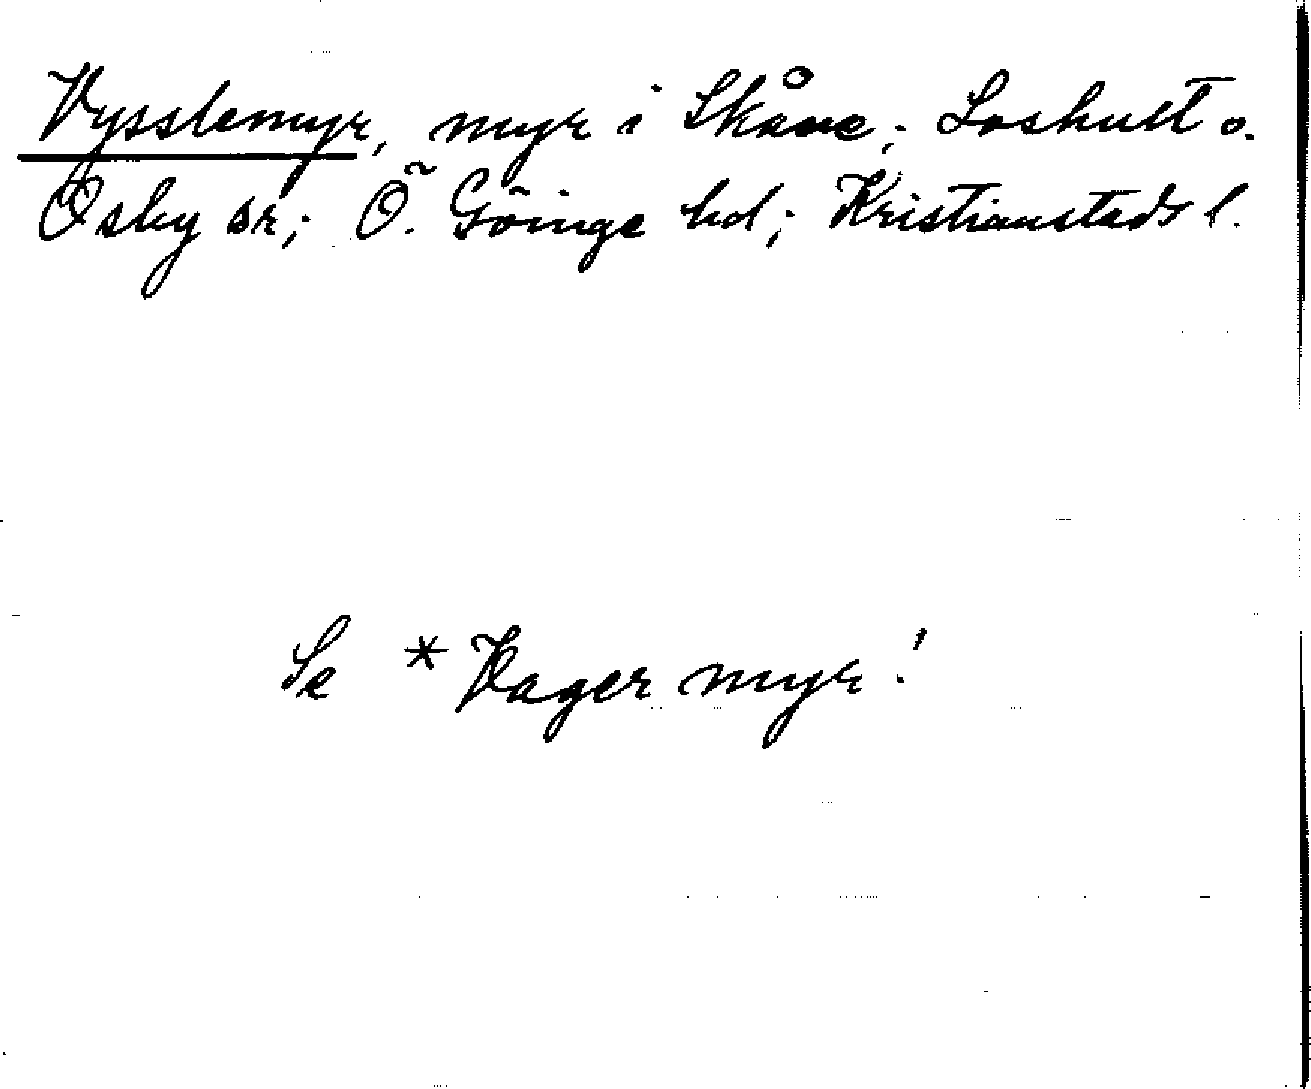 Vysslemyr, myr i Skåne; Loshult o.
Osby sr; Ö. Göinge hd; Kristianstads l.
Se *Vager myr!